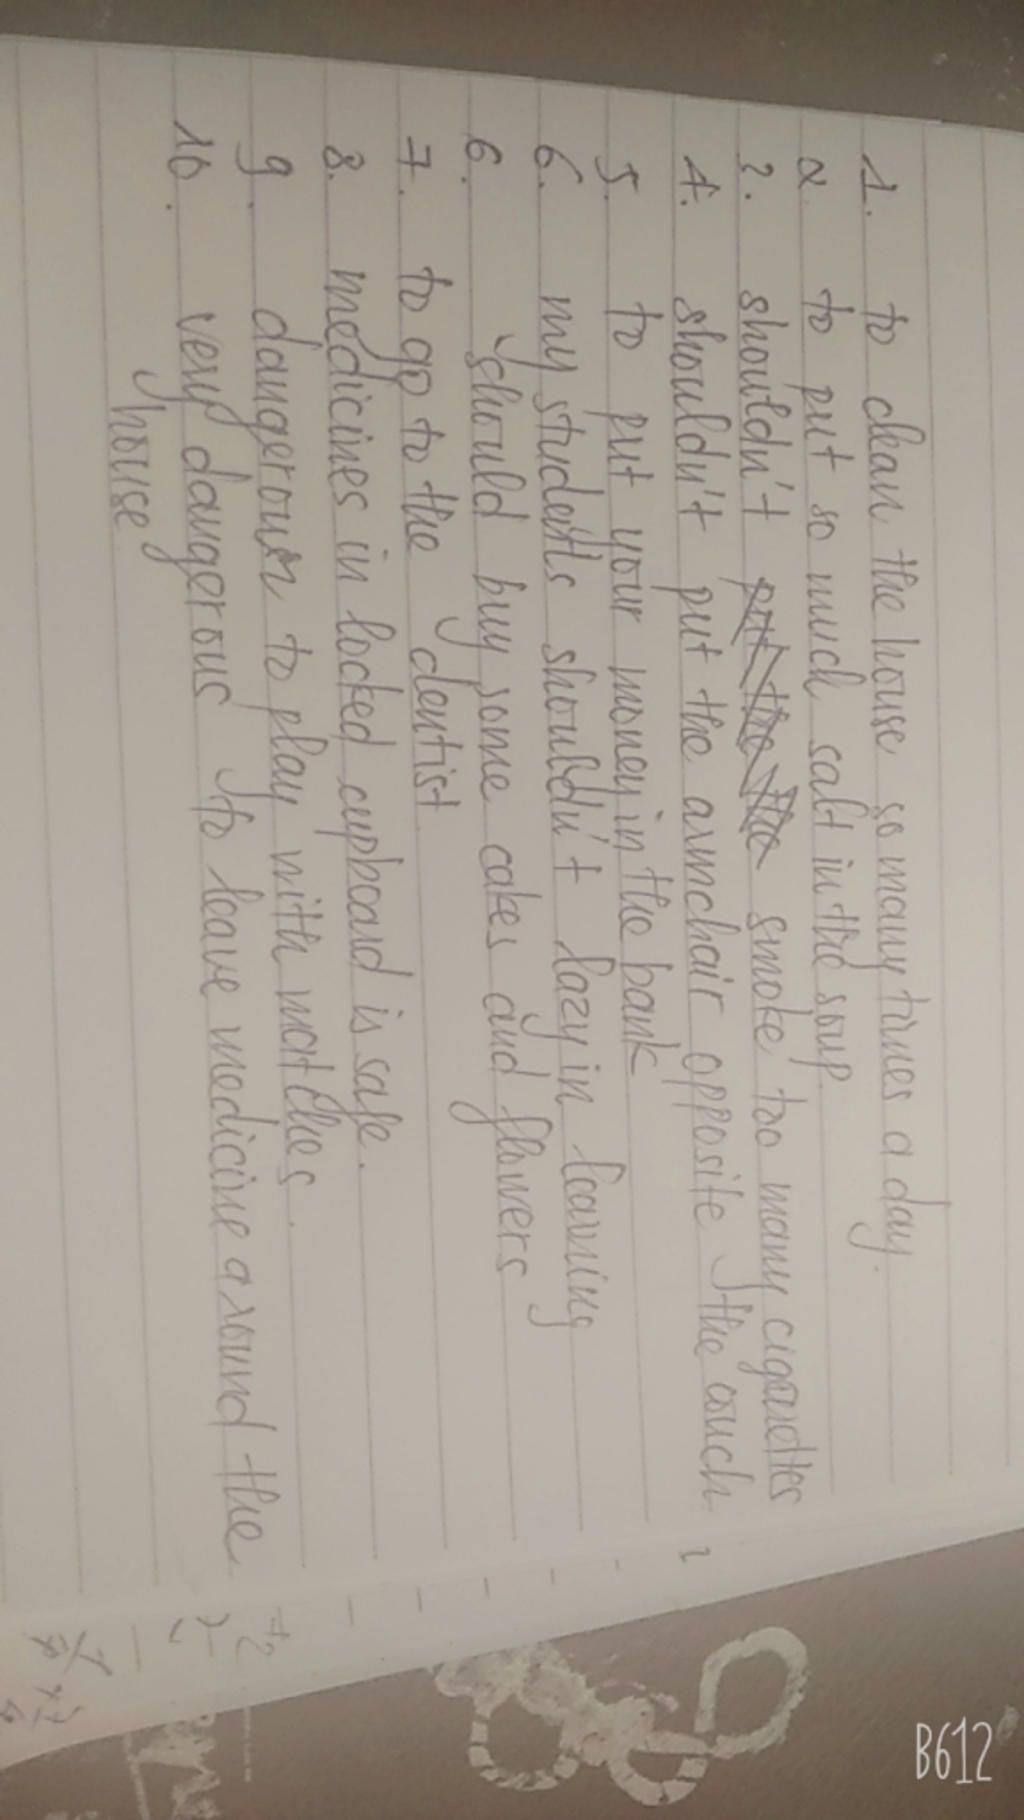 1. to clean the house so many times a day.
2. to put so much salt in the soup.
3. shouldn't put the the smoke too many cigarettes
4. shouldn't put the armchair opposite the couch
5. to put your money in the bank
6. my students shouldn't lazy in learning
6. should buy some cakes and flowers
7. to go to the dentist
8. medicines in locked cupboard is safe.
9. dangerous to play with matches.
10. very dangerous to leave medicine around the
house
B612